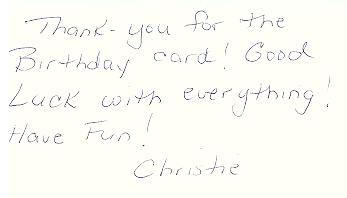 Thank-you for the
Birthday card! Good
Luck with everything!
Have Fun!
Christie